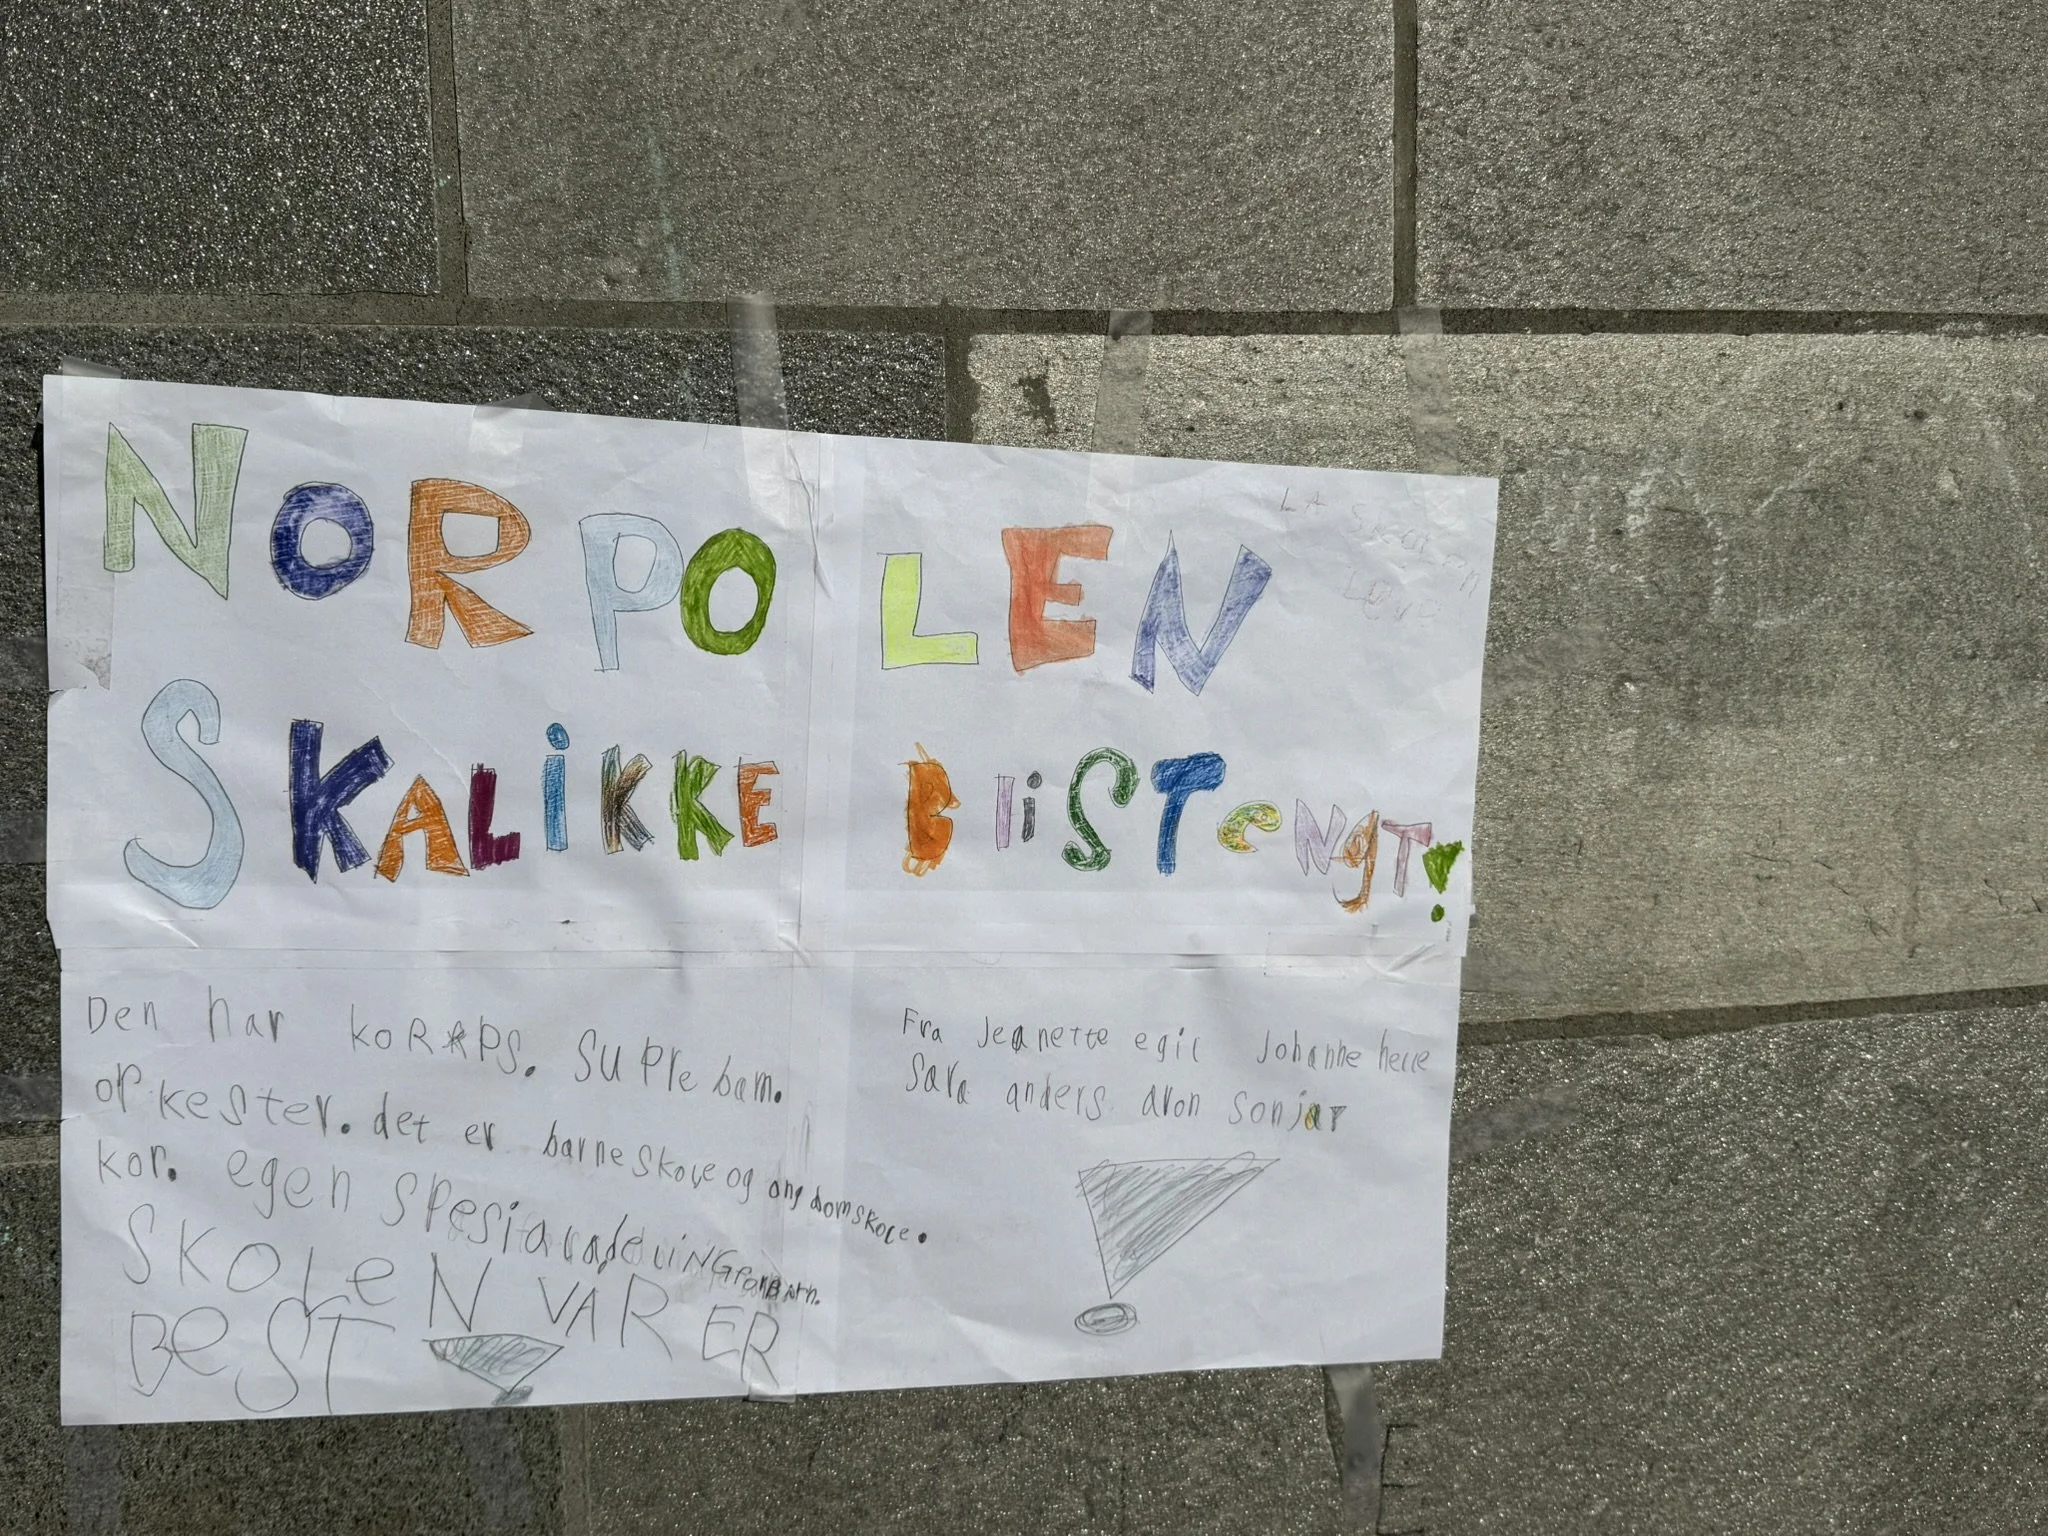 NORPOLEN
SKAL iKKE BliSTeNgT!
Den har koRPS. SUPle bam.
orkester. det er barneskole og ongdomskole.
kor. egen spesialadeliNG FOR BArn.
SKOleN VAR ER
BeST!
Fra Jeanette egil Johanne helle
Sara anders aron Sonjar
!